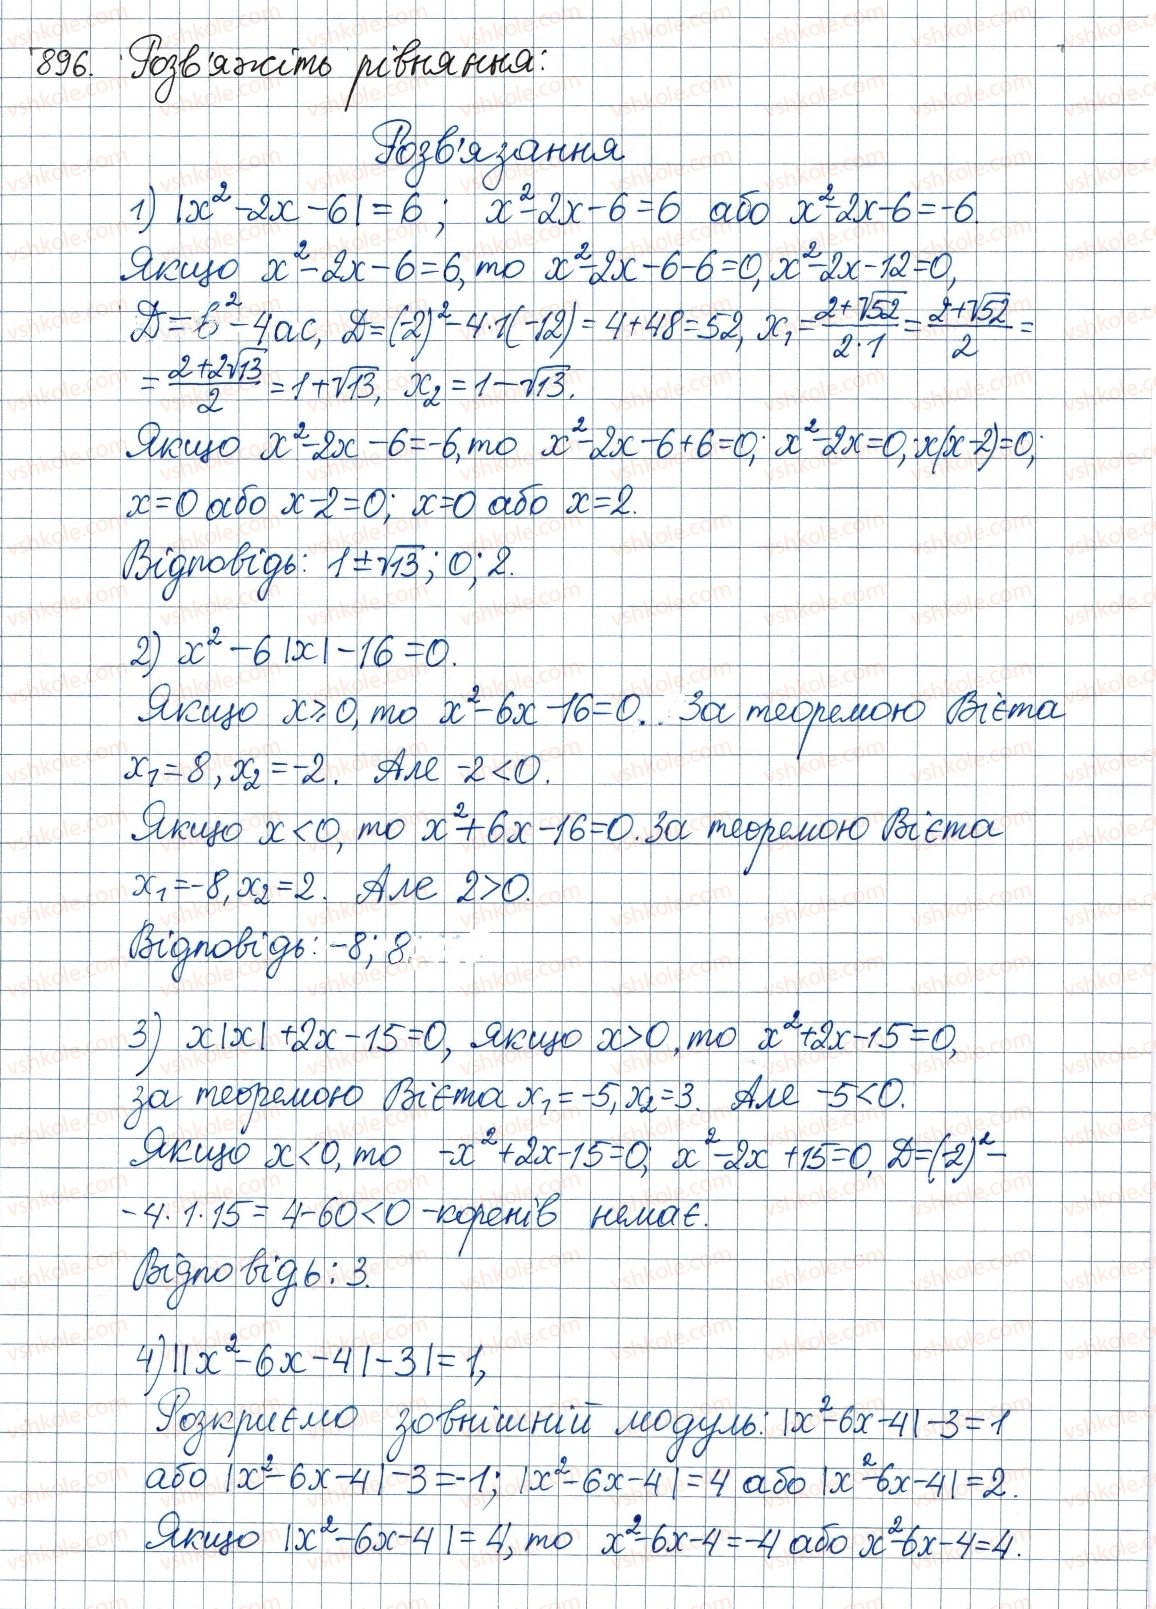 896. Розв'яжіть рівняння:
Розв'язання
1) |x²-2x-6|=6; x²-2x-6=6 або x²-2x-6=-6.
Якщо x²-2x-6=6, то x²-2x-6-6=0, x²-2x-12=0,
D=b²-4ac, D=(-2)²-4·1(-12)=4+48=52, x₁=(2+√52)/(2·1)=(2+√52)/2=
=(2+2√13)/2=1+√13, x₂=1-√13.
Якщо x²-2x-6=-6, то x²-2x-6+6=0; x²-2x=0; x(x-2)=0;
x=0 або x-2=0; x=0 або x=2.
Відповідь: 1±√13; 0; 2.
2) x²-6|x|-16=0.
Якщо x≥0, то x²-6x-16=0. За теоремою Вієта
x₁=8, x₂=-2. Але -2<0.
Якщо x<0, то x²+6x-16=0. За теоремою Вієта
x₁=-8, x₂=2. Але 2>0.
Відповідь: -8; 8.
3) x|x|+2x-15=0, Якщо x>0, то x²+2x-15=0,
за теоремою Вієта x₁=-5, x₂=3. Але -5<0.
Якщо x<0, то -x²+2x-15=0; x²-2x+15=0, D=(-2)²-
-4·1·15=4-60<0 -коренів немає.
Відповідь: 3.
4) ||x²-6x-4|-3|=1,
Розкриємо зовнішній модуль: |x²-6x-4|-3=1
або |x²-6x-4|-3=-1; |x²-6x-4|=4 або |x²-6x-4|=2.
Якщо |x²-6x-4|=4, то x²-6x-4=-4 або x²-6x-4=4.